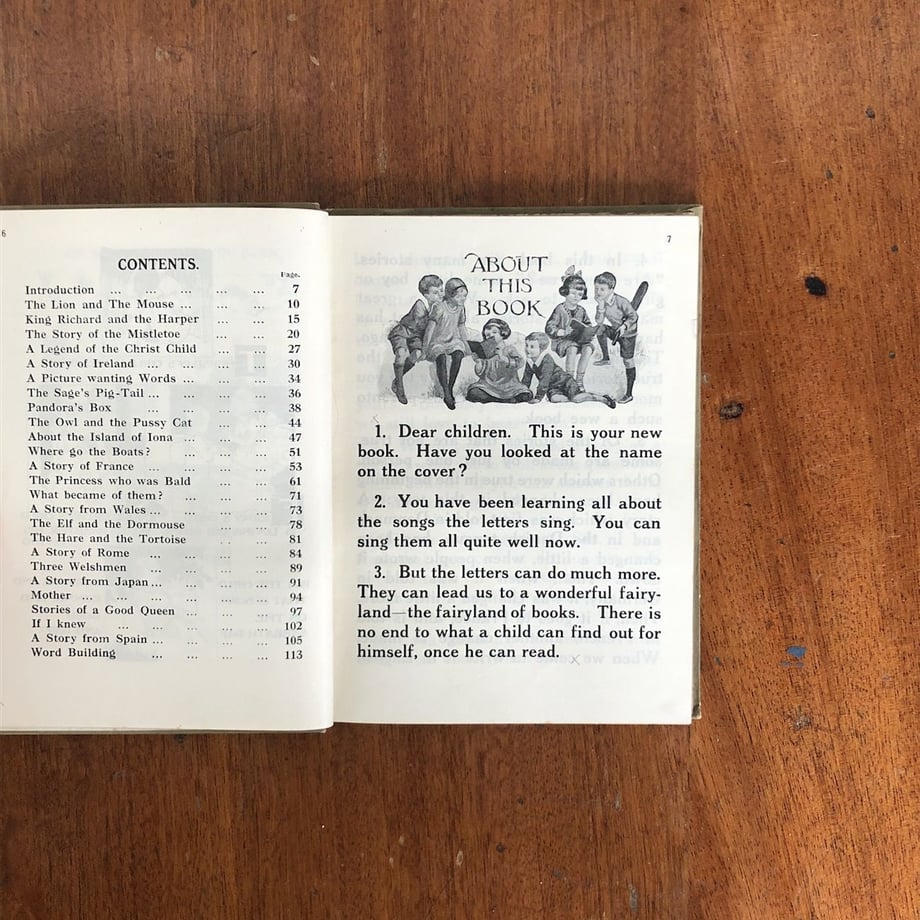 6
CONTENTS.
Page.
Introduction ... ... ... ... 7
The Lion and The Mouse ... ... ... 10
King Richard and the Harper ... ... 15
The Story of the Mistletoe ... ... 20
A Legend of the Christ Child ... ... 27
A Story of Ireland ... ... ... 30
A Picture wanting Words ... ... ... 34
The Sage's Pig-Tail ... ... ... ... 36
Pandora's Box ... ... ... ... 38
The Owl and the Pussy Cat ... ... 44
About the Island of Iona ... ... ... 47
Where go the Boats? ... ... ... 51
A Story of France ... ... ... 53
The Princess who was Bald ... ... 61
What became of them? ... ... ... 71
A Story from Wales ... ... ... ... 73
The Elf and the Dormouse ... ... 78
The Hare and the Tortoise ... ... 81
A Story of Rome ... ... ... ... 84
Three Welshmen ... ... ... 89
A Story from Japan ... ... ... ... 91
Mother ... ... ... ... ... 94
Stories of a Good Queen ... ... ... 97
If I knew ... ... ... ... 102
A Story from Spain ... ... ... ... 105
Word Building ... ... ... ... 113
7
ABOUT
THIS
BOOK
1. Dear children. This is your new
book. Have you looked at the name
on the cover?
2. You have been learning all about
the songs the letters sing. You can
sing them all quite well now.
3. But the letters can do much more.
They can lead us to a wonderful fairy-
land—the fairyland of books. There is
no end to what a child can find out for
himself, once he can read.